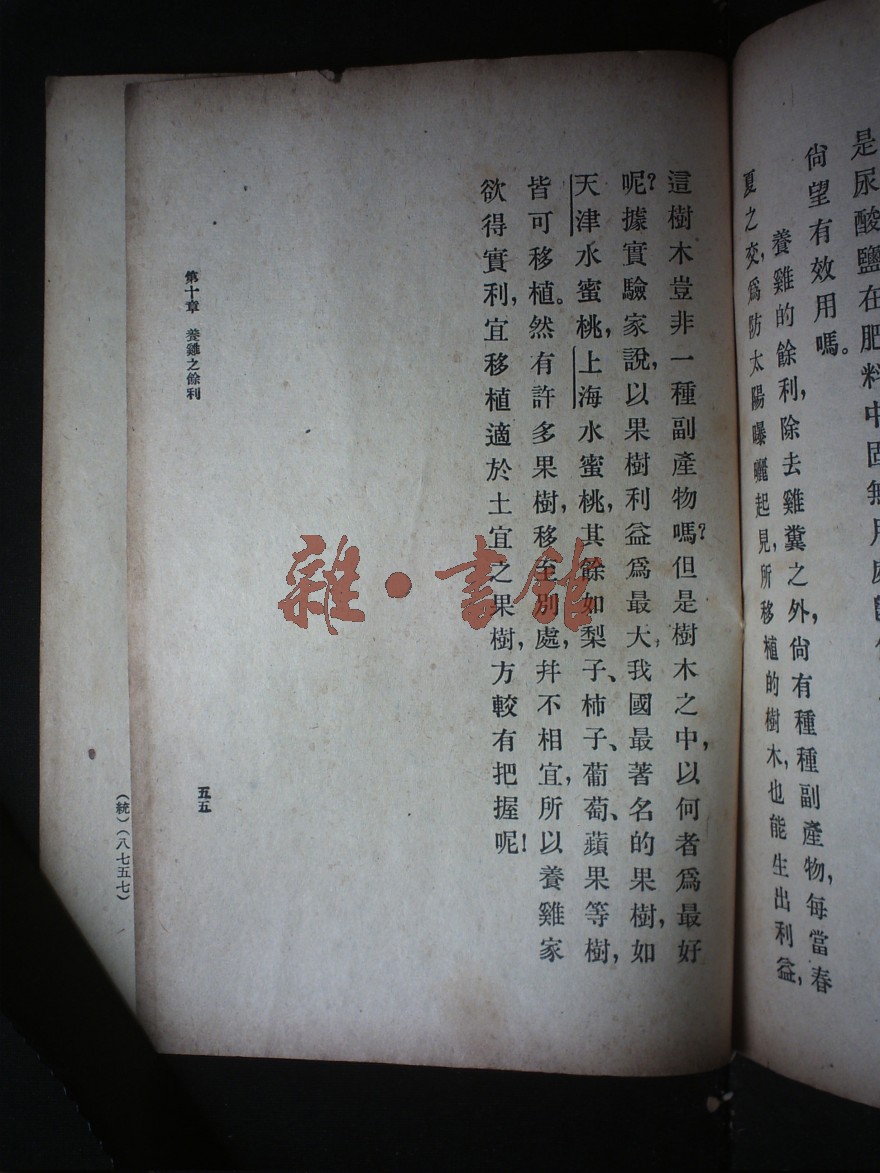 是尿酸鹽在肥料中固無用處
尙望有效用嗎。
養雞的餘利，除去雞糞之外，尙有種種副產物，每當春
夏之交，爲防太陽曝曬起見，所移植的樹木，也能生出利益，
這樹木豈非一種副產物嗎？但是樹木之中，以何者爲最好
呢？據實驗家說，以果樹利益爲最大，我國最著名的果樹，如
天津水蜜桃，上海水蜜桃，其餘如梨子、柿子、葡萄、蘋果等樹，
皆可移植。然有許多果樹，移至別處，幷不相宜，所以養雞家
欲得實利，宜移植適於土宜之果樹，方較有把握呢！
第十章 養雞之餘利
五五
（統）（八七五七）
雜·書館